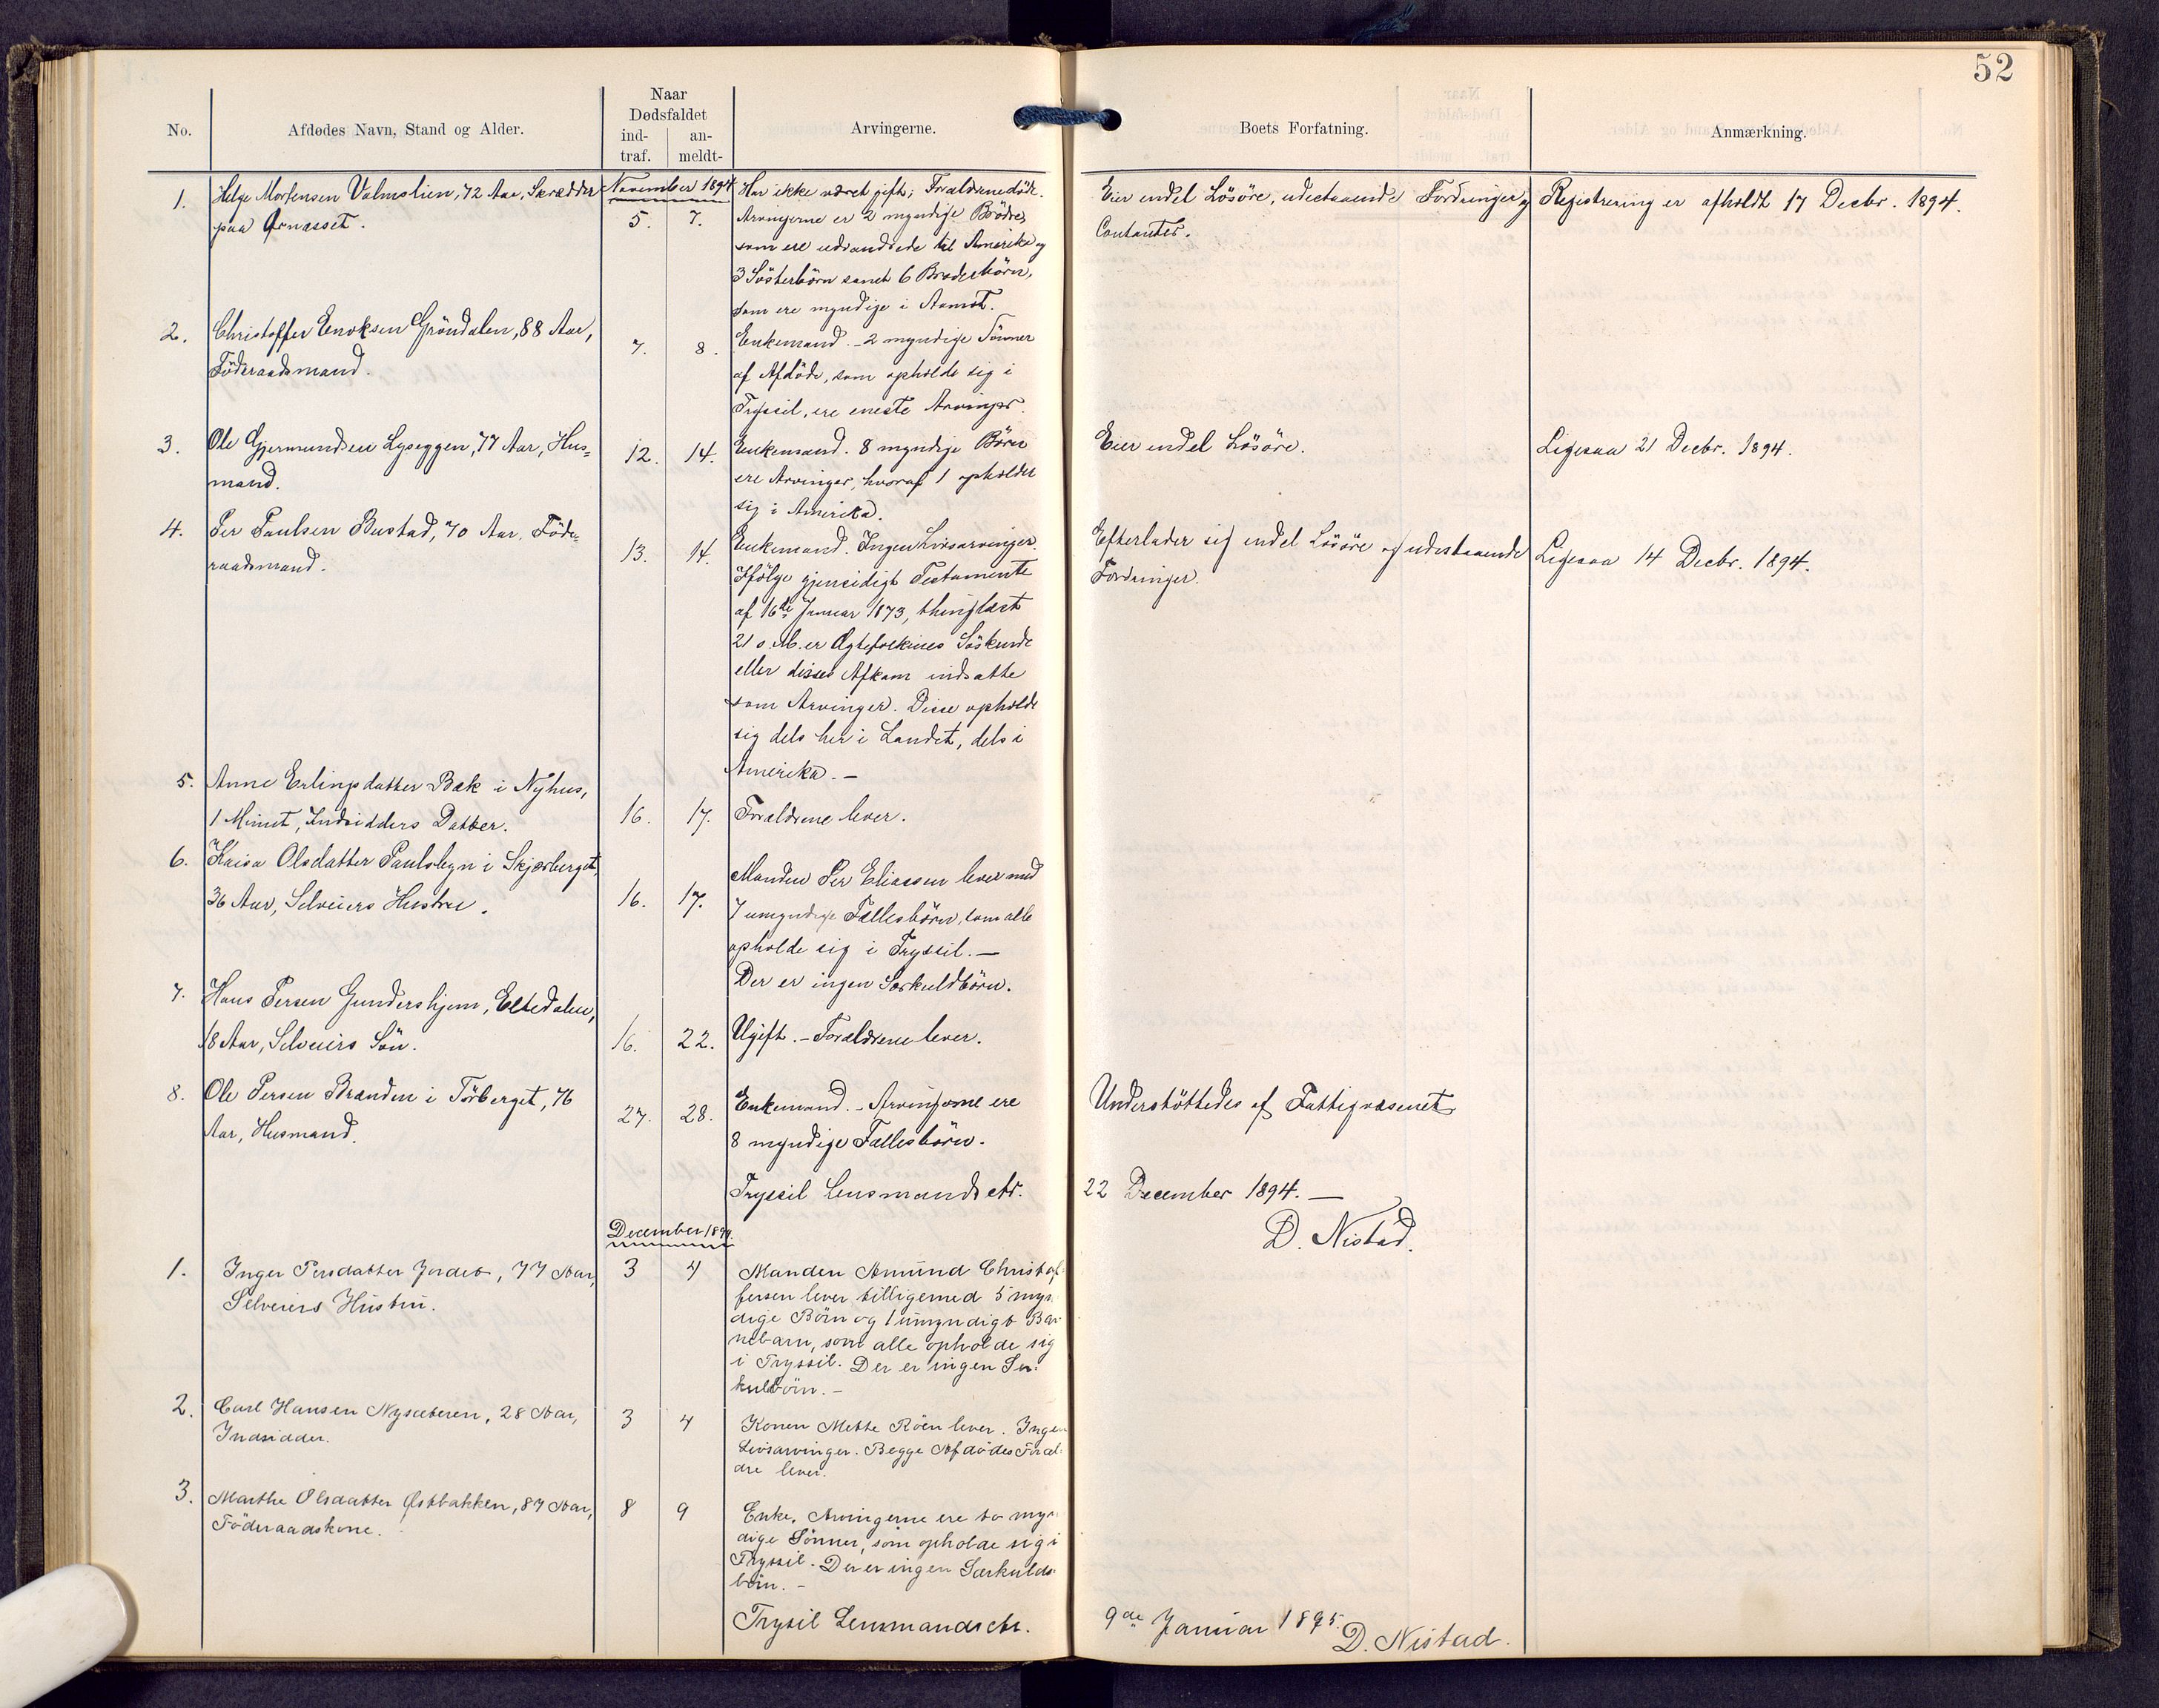 52
Naar
Dødsfaldet
No.
Afdødes Navn, Stand og Alder.
ind-
traf.
an-
meldt-
Arvingerne.
Boets Forfatning.
Anmærkning.
November 1894
1.
Helge Mortensen Valmslien, 72 Aar, Skrædder
paa Ørnæsset.
5.
7.
Har ikke været gift; Forældrene döde.
Arvingerne er 2 myndige Brödre,
som ere udvandrede til Amerika og
3 Sösterbörn samt 6 Broderbörn,
som ere myndige i Aamot.
Eier endel Lösöre, udestaaende Fordringer og
Contanter.
Registrering er afholdt 17 Decbr. 1894.
2.
Christoffer Enoksen Gröndalen, 88 Aar,
Föderaadsmand.
7.
8.
Enkemand. - 2 myndige Sönner
af Afdöde, som opholde sig i
Trysil, ere eneste Arvinger.
3.
Ole Gjermundsen Lyseggen, 77 Aar, Hus=
mand.
12.
14.
Enkemand. 8 myndige Börn
ere Arvinger, hvoraf 1 opholder
sig i Amerika.
Eier endel Lösöre.
Ligesaa 21 Decbr. 1894.
4.
Per Paulsen Bustad, 70 Aar, Föde=
raadsmand.
13.
14.
Enkemand. Ingen Livsarvinger.
Ifölge gjensidigt Testamente
af 16de Januar 1873, thinglæst
21 s. M. er Ægtefolkenes Söskende
eller disses Afkom indsatte
som Arvinger. Disse opholde
sig dels her i Landet, dels i
Amerika. -
Efterlader sig endel Lösöre og udestaaende
Fordringer.
Ligesaa 14 Decbr. 1894.
5.
Anne Erlingsdatter Bæk i Nyhus,
1 Minut, Indsidders Datter.
16.
17.
Forældrene lever.
6.
Kaisa Olsdatter Paulsbyn i Skjærberget,
36 Aar, Selveiers Hustru.
16.
17.
Manden Per Eliassen lever med
7 umyndige Fællesbörn, som alle
opholde sig i Trysil. -
Der er ingen Særkuldbörn.
7.
Hans Persen Gundershjem, Eltedalen,
18 Aar, Selveiers Sön.
16.
22.
Ugift. - Forældrene lever.
8.
Ole Persen Brænden i Törberget, 76
Aar, Husmand.
27.
28.
Enkemand. - Arvingerne ere
8 myndige Fællesbörn.
Understöttedes af Fattigvæsenet
Trysil Lensmandsctr.
22 December 1894. -
D. Nistad.
December 1894.
1.
Inger Persdatter Jordet, 77 Aar,
Selveiers Hustru.
3
4
Manden Amund Christof-
fersen lever tilligemed 5 myn-
dige Börn og 1 umyndigt Bar-
nebarn, som alle opholde sig
i Trysil. Der er ingen Sær-
kuldbörn. -
2.
Carl Hansen Nysæteren, 28 Aar,
Indsidder.
3
4
Konen Mette Röen lever. Ingen
Livsarvinger. Begge Afdödes Foræl-
dre lever.
3.
Marthe Olsdatter Østbakken, 87 Aar,
Föderaadskone.
8
9
Enke, Arvingerne ere to myn-
dige Sönner, som opholde sig i
Trysil. Der er ingen Særkulds-
börn. -
Trysil Lensmandsctr.
9de Januar 1895.
D. Nistad.